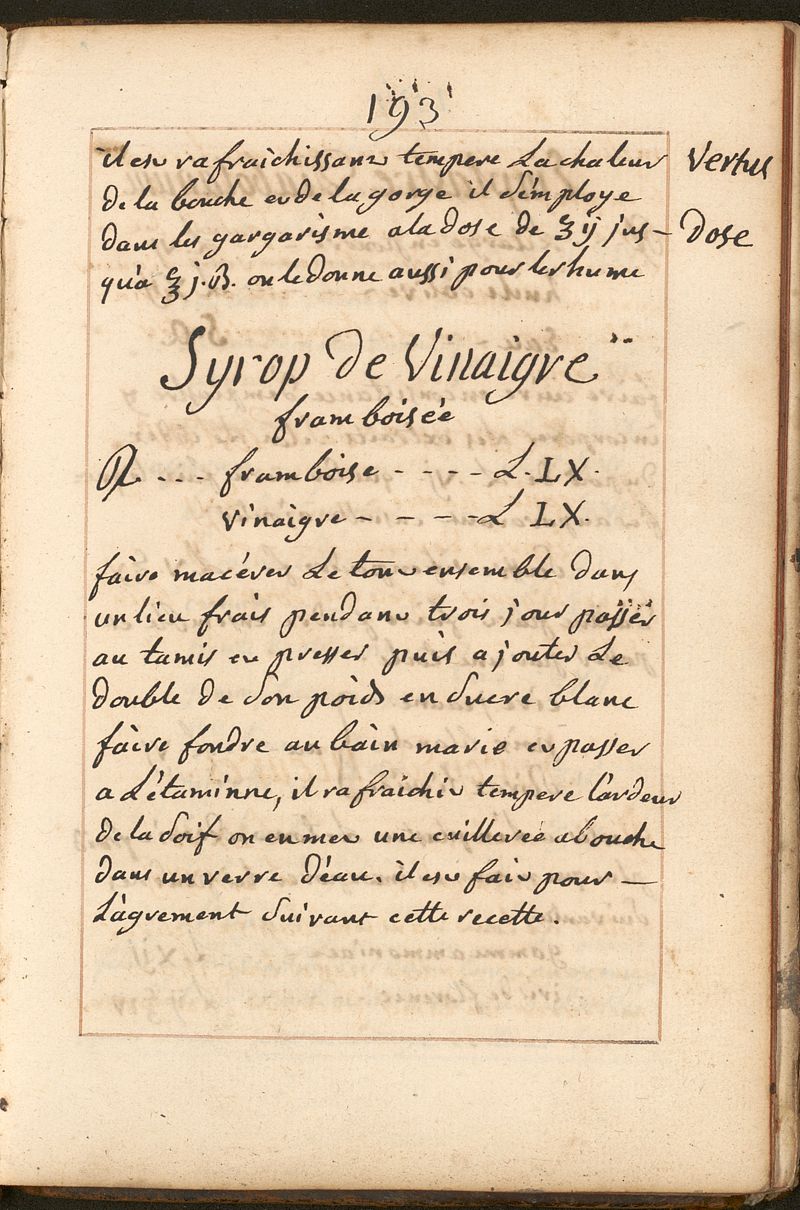 193
il est rafraichissant tempere La chaleur
Vertus
de la bouche et de la gorge il s'employe
dans les gargarisme a la dose de ʒ ij jus-
Dose
qu'a ℥ j.ß. on le donne aussi pour le rhume
Syrop de Vinaigre
framboisée
℞ - - - framboise - - - - L. LX.
vinaigre - - - - L LX.
faire macérer Le tout ensemble dans
un lieu frais pendant trois jour passer
au tamis et presser puis ajouter Le
double de son poids en sucre blanc
faire fondre au bain marie et passer
a L'étaminne, il rafraichit tempere l'ardeur
de la soif on en met une cuillerée a bouche
dans un verre d'eau. il est fait pour —
L'agrement suivant cette recette.